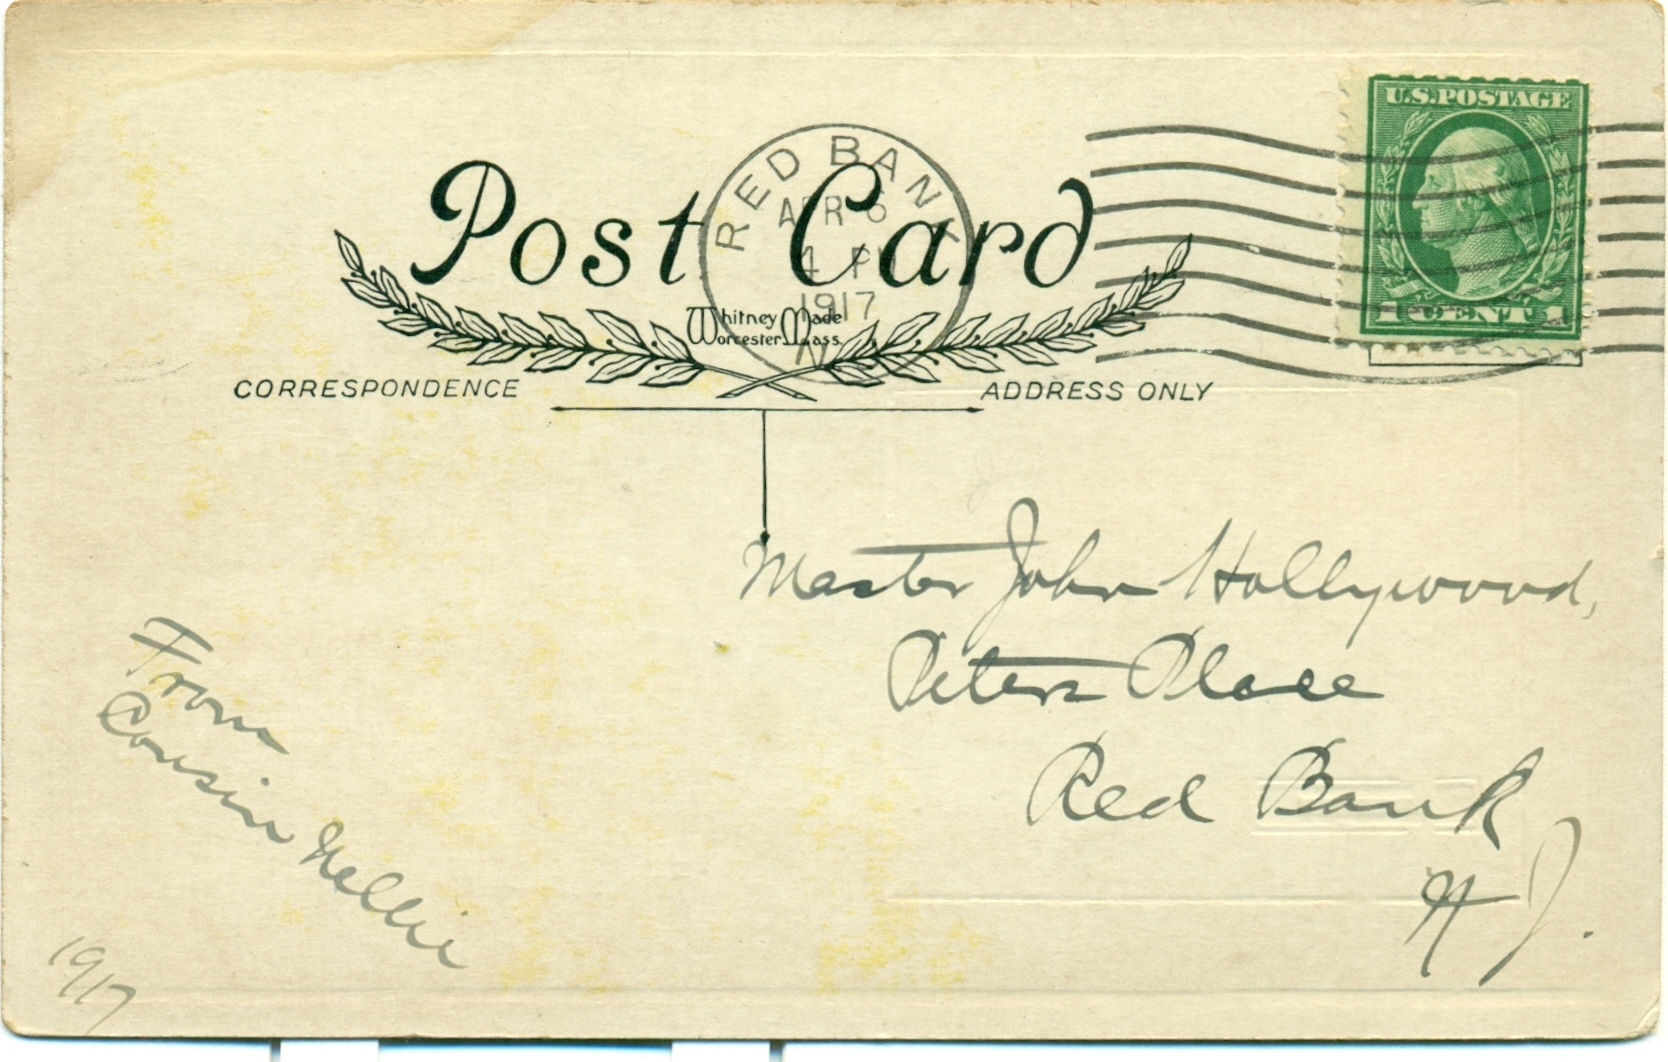 U.S.POSTAGE
1 CENT 1
RED BANK
APR 6
4 P
1917
N
Post Card
Whitney Made
Worcester Mass.
CORRESPONDENCE
ADDRESS ONLY
Master John Hollywood,
Peters Place
Red Bank
N J.
From
Cousin Nellie
1917